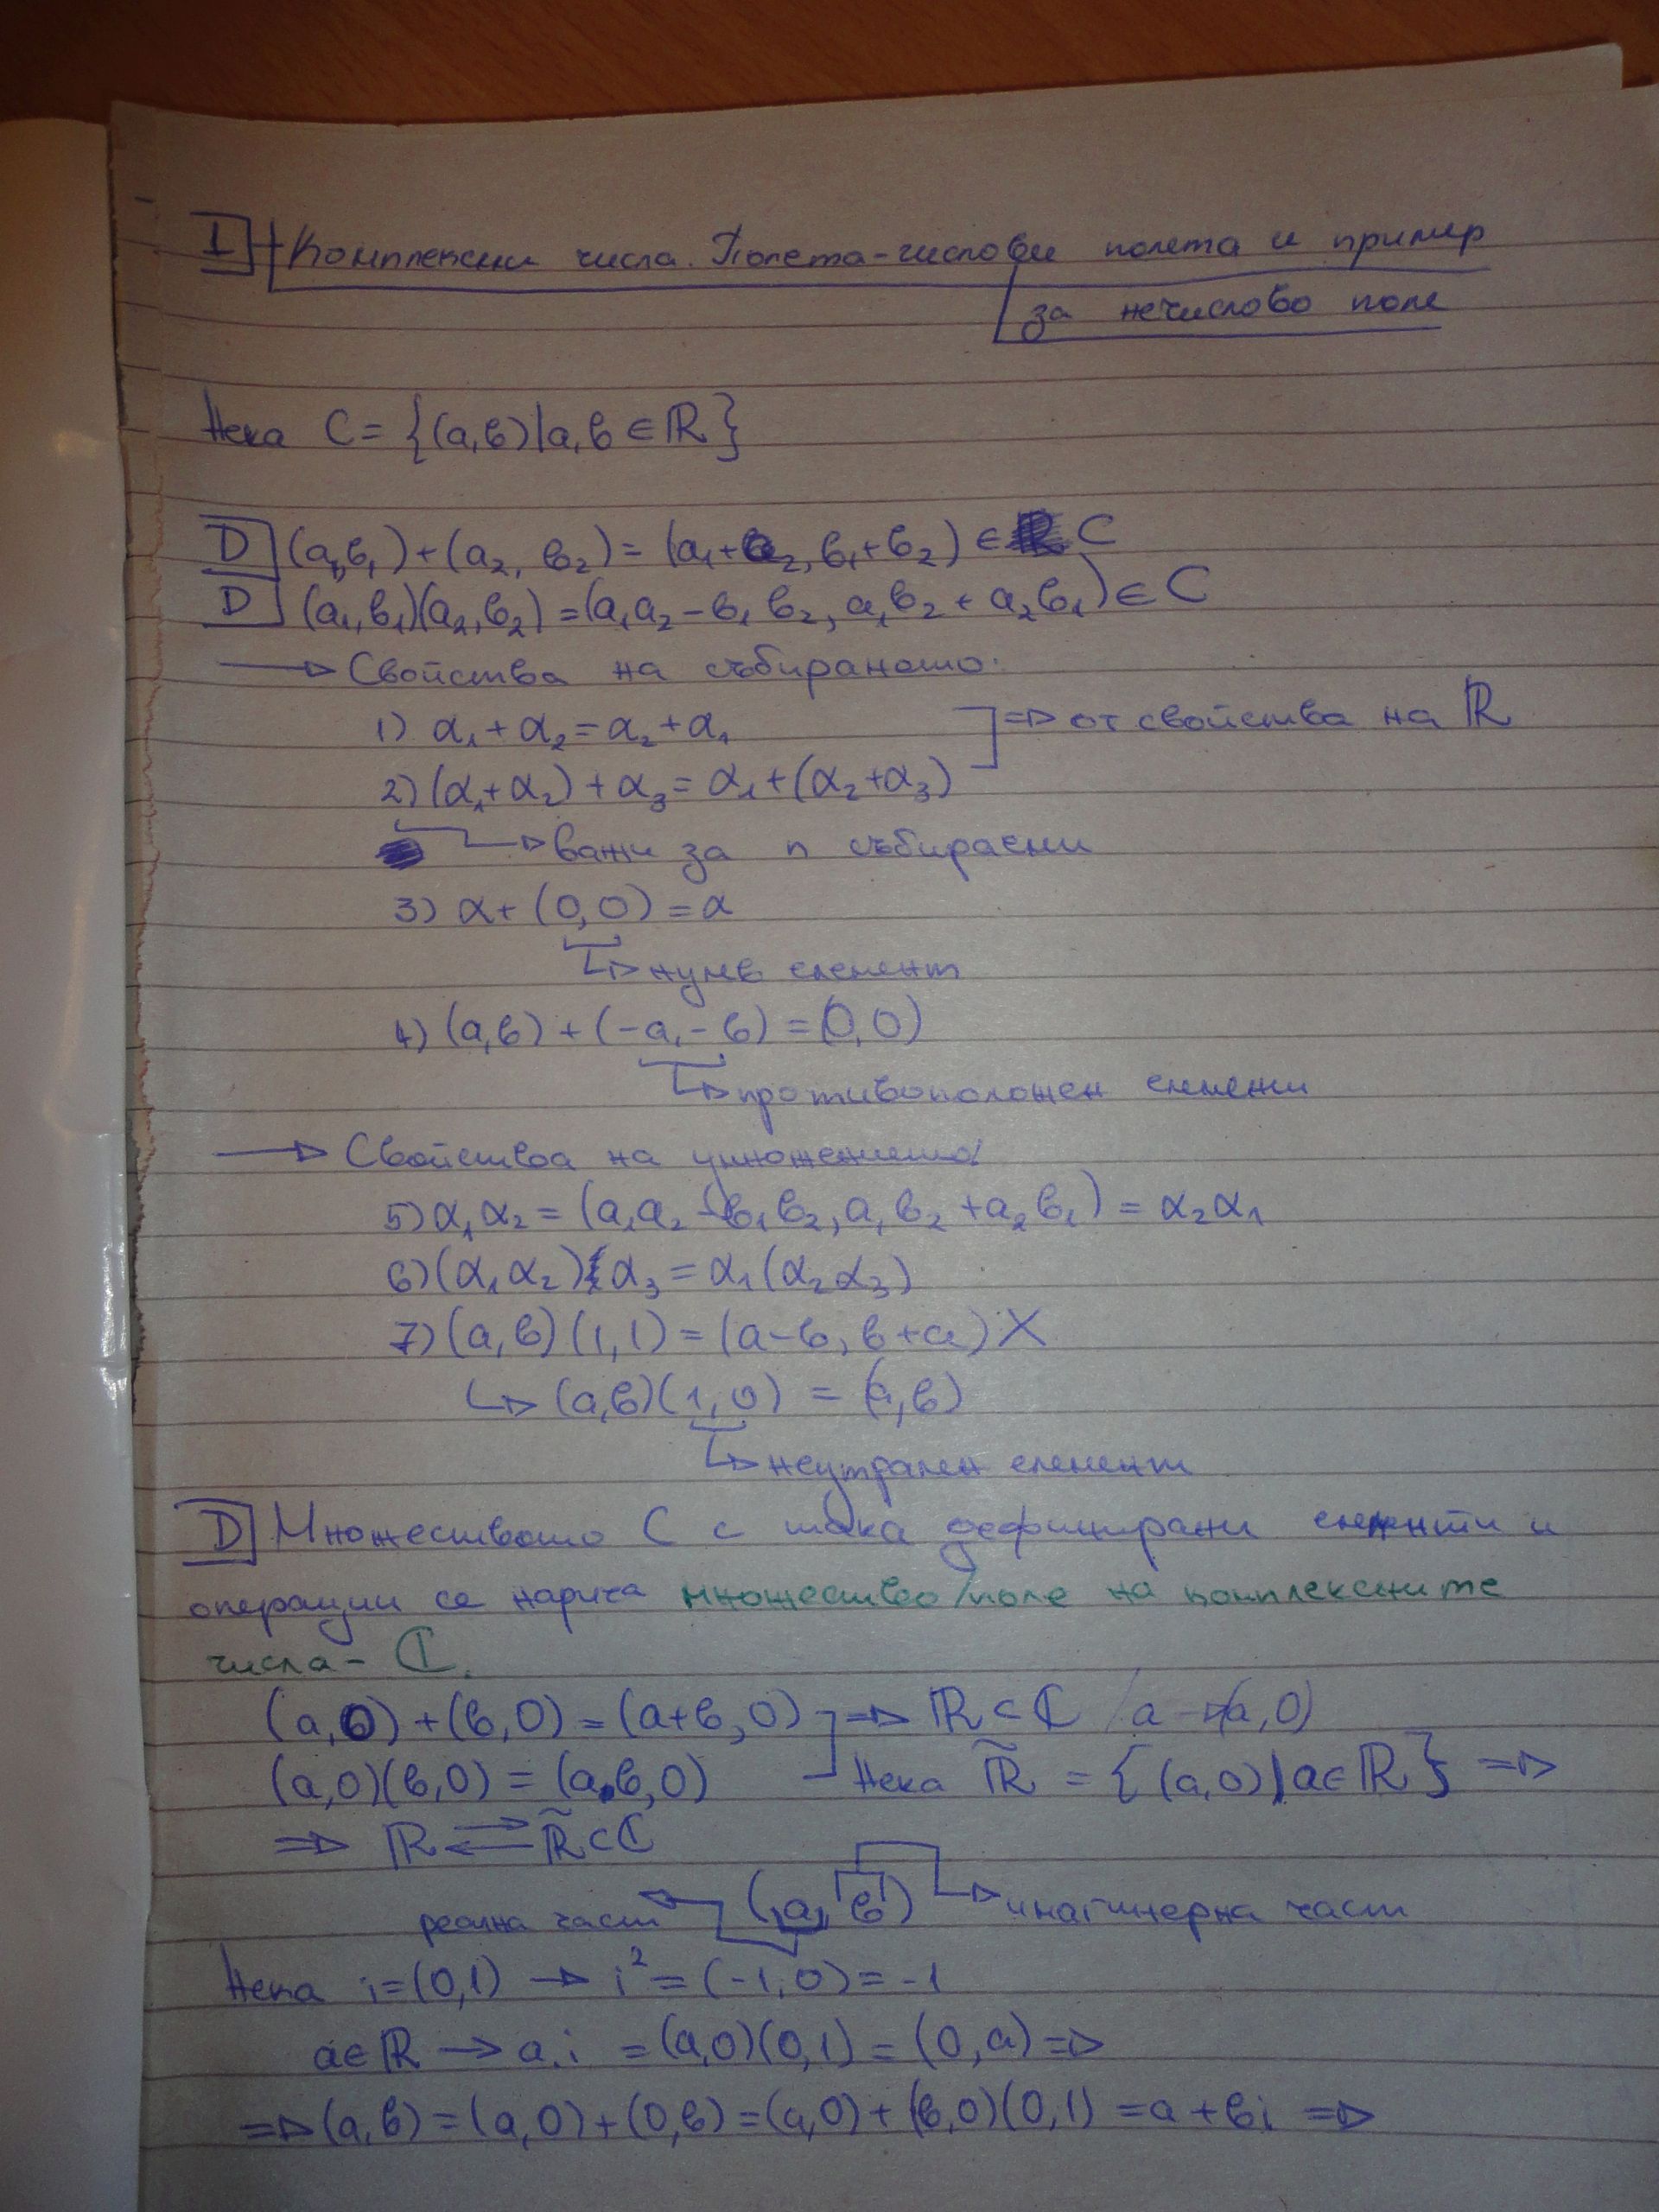 I Комплексни числа. Полета-числови полета и пример
за нечислово поле
Нека C = {(a,b)|a,b ∈ ℝ}
D (a₁,b₁)+(a₂, b₂) = (a₁+a₂, b₁+b₂) ∈ C
D (a₁,b₁)(a₂,b₂) = (a₁a₂-b₁b₂, a₁b₂+a₂b₁) ∈ C
→ Свойства на събирането:
1) α₁+α₂=α₂+α₁ ⇒ от свойства на ℝ
2) (α₁+α₂)+α₃=α₁+(α₂+α₃)
→ важи за n събираеми
3) α+(0,0)=α
→ нулев елемент
4) (a,b)+(-a,-b)=(0,0)
→ противоположен елемент
→ Свойства на умножението:
5) α₁α₂=(a₁a₂-b₁b₂, a₁b₂+a₂b₁)=α₂α₁
6) (α₁α₂)α₃=α₁(α₂α₃)
7) (a,b)(1,1)=(a-b, b+a) X
↳ (a,b)(1,0) = (a,b)
→ неутрален елемент
D Множеството C с така дефинирани елементи и
операции се нарича множество/поле на комплексните
числа - ℂ.
(a,0)+(b,0)=(a+b,0) ⇒ ℝ⊂ℂ /a→(a,0)
(a,0)(b,0)=(a.b,0) Нека ℝ̃ = {(a,0)|a∈ℝ} ⇒
⇒ ℝ ⇄ ℝ̃⊂ℂ
реална част ← (a, b) → имагинерна част
Нека i=(0,1) → i²=(-1,0)=-1
a∈ℝ → a.i = (a,0)(0,1) = (0,a) ⇒
⇒ (a,b)=(a,0)+(0,b)=(a,0)+(b,0)(0,1)=a+bi ⇒